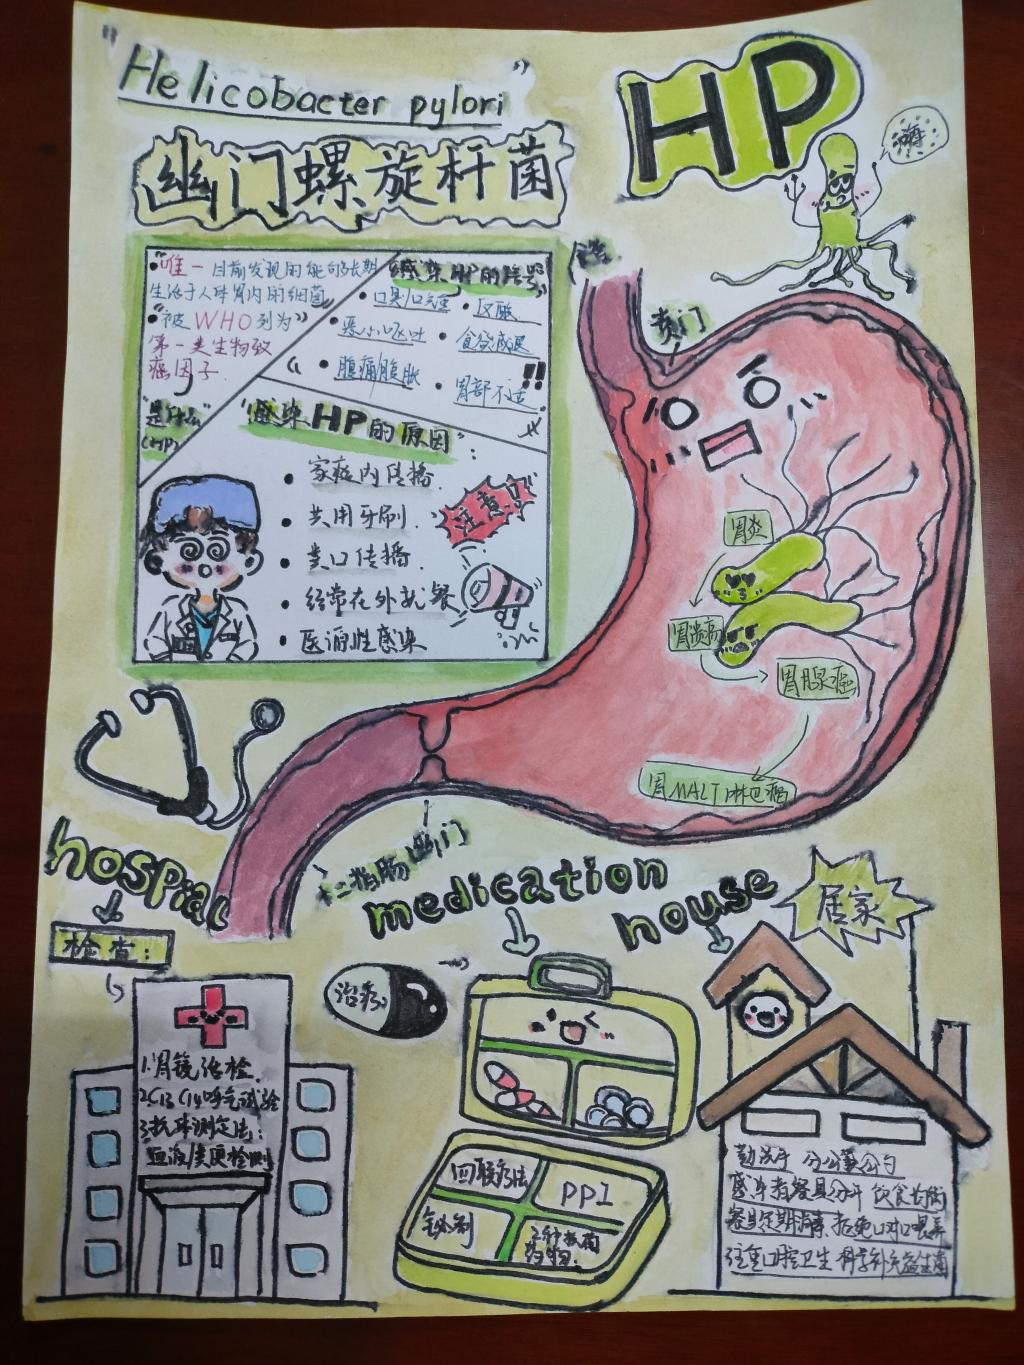 "Helicobacter pylori"
幽门螺旋杆菌
HP
唯一目前发现的能够长期
生活于人体胃内的细菌
"被WHO列为"
第一类生物致
癌因子.
"是什么
(HP)"
感染HP的信号
口臭/口气重
反酸
恶心呕吐
食欲减退
腹痛腹胀
胃部不适
!!
"感染HP的原因"
家庭内传播.
共用牙刷.
粪口传播.
经常在外就餐
医源性感染
注意!
食管
贲门
胃炎
胃溃疡
胃腺癌
胃MALT淋巴瘤
幽门
十二指肠
hospial
检查:
1.胃镜活检.
2.C13 C14呼气试验
3.抗体测定法:
血液/粪便检测
medication
治疗
四联疗法
PPI
铋剂
2种抗菌
药物.
house
居家
勤洗手 分公筷公勺
感染者餐具分开 饮食均衡
餐具定期消毒 拒绝口对口喂养
注重口腔卫生 科学补充益生菌